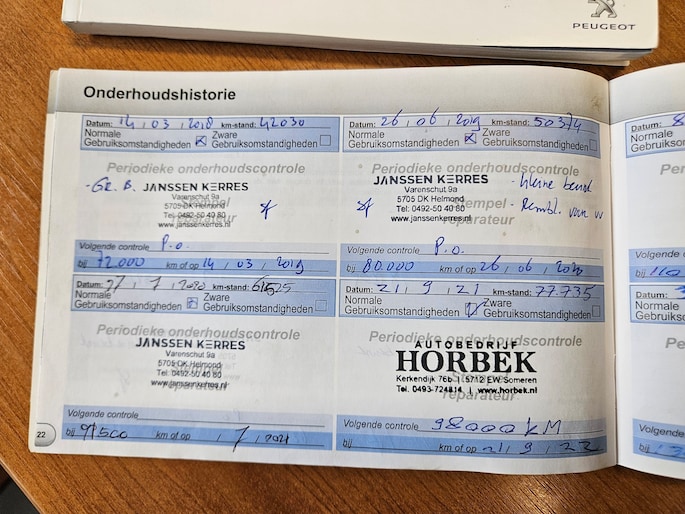 PEUGEOT
Onderhoudshistorie
Datum: 14 , 03 , 2018 km-stand: 42030
Normale Gebruiksomstandigheden
Zware Gebruiksomstandigheden
Periodieke onderhoudscontrole
- Gr. B.
JANSSEN KERRES
Varenschut 9a
5705 DK Helmond
Tel. 0492-50 40 80
www.janssenkerres.nl
Volgende controle P.O.
bij 72.000 km of op 14 , 03 , 2019
Datum: 26 , 06 , 2019 km-stand: 50374
Normale Gebruiksomstandigheden
Zware Gebruiksomstandigheden
Periodieke onderhoudscontrole
JANSSEN KERRES
Varenschut 9a
5705 DK Helmond
Tel. 0492-50 40 80
www.janssenkerres.nl
Stempel
reparateur
- kleine beurt
Volgende controle P.O.
bij 80.000 km of op 26 , 06 , 2020
Datum: , 7 , 2020 km-stand:
Normale Gebruiksomstandigheden
Zware Gebruiksomstandigheden
Periodieke onderhoudscontrole
JANSSEN KERRES
Varenschut 9a
5705 DK Helmond
Tel. 0492-50 40 80
www.janssenkerres.nl
reparateur
Volgende controle
bij 91500 km of op , 7 , 2021
Datum: 21 , 9 , 21 km-stand: 77.735
Normale Gebruiksomstandigheden
Zware Gebruiksomstandigheden
Periodieke onderhoudscontrole
AUTOBEDRIJF
HORBEK
Kerkendijk 76b | 5712 EW Someren
Tel. 0493-724814 | www.horbek.nl
reparateur
Volgende controle 98000 KM
bij km of op 21 , 9 , 22
22